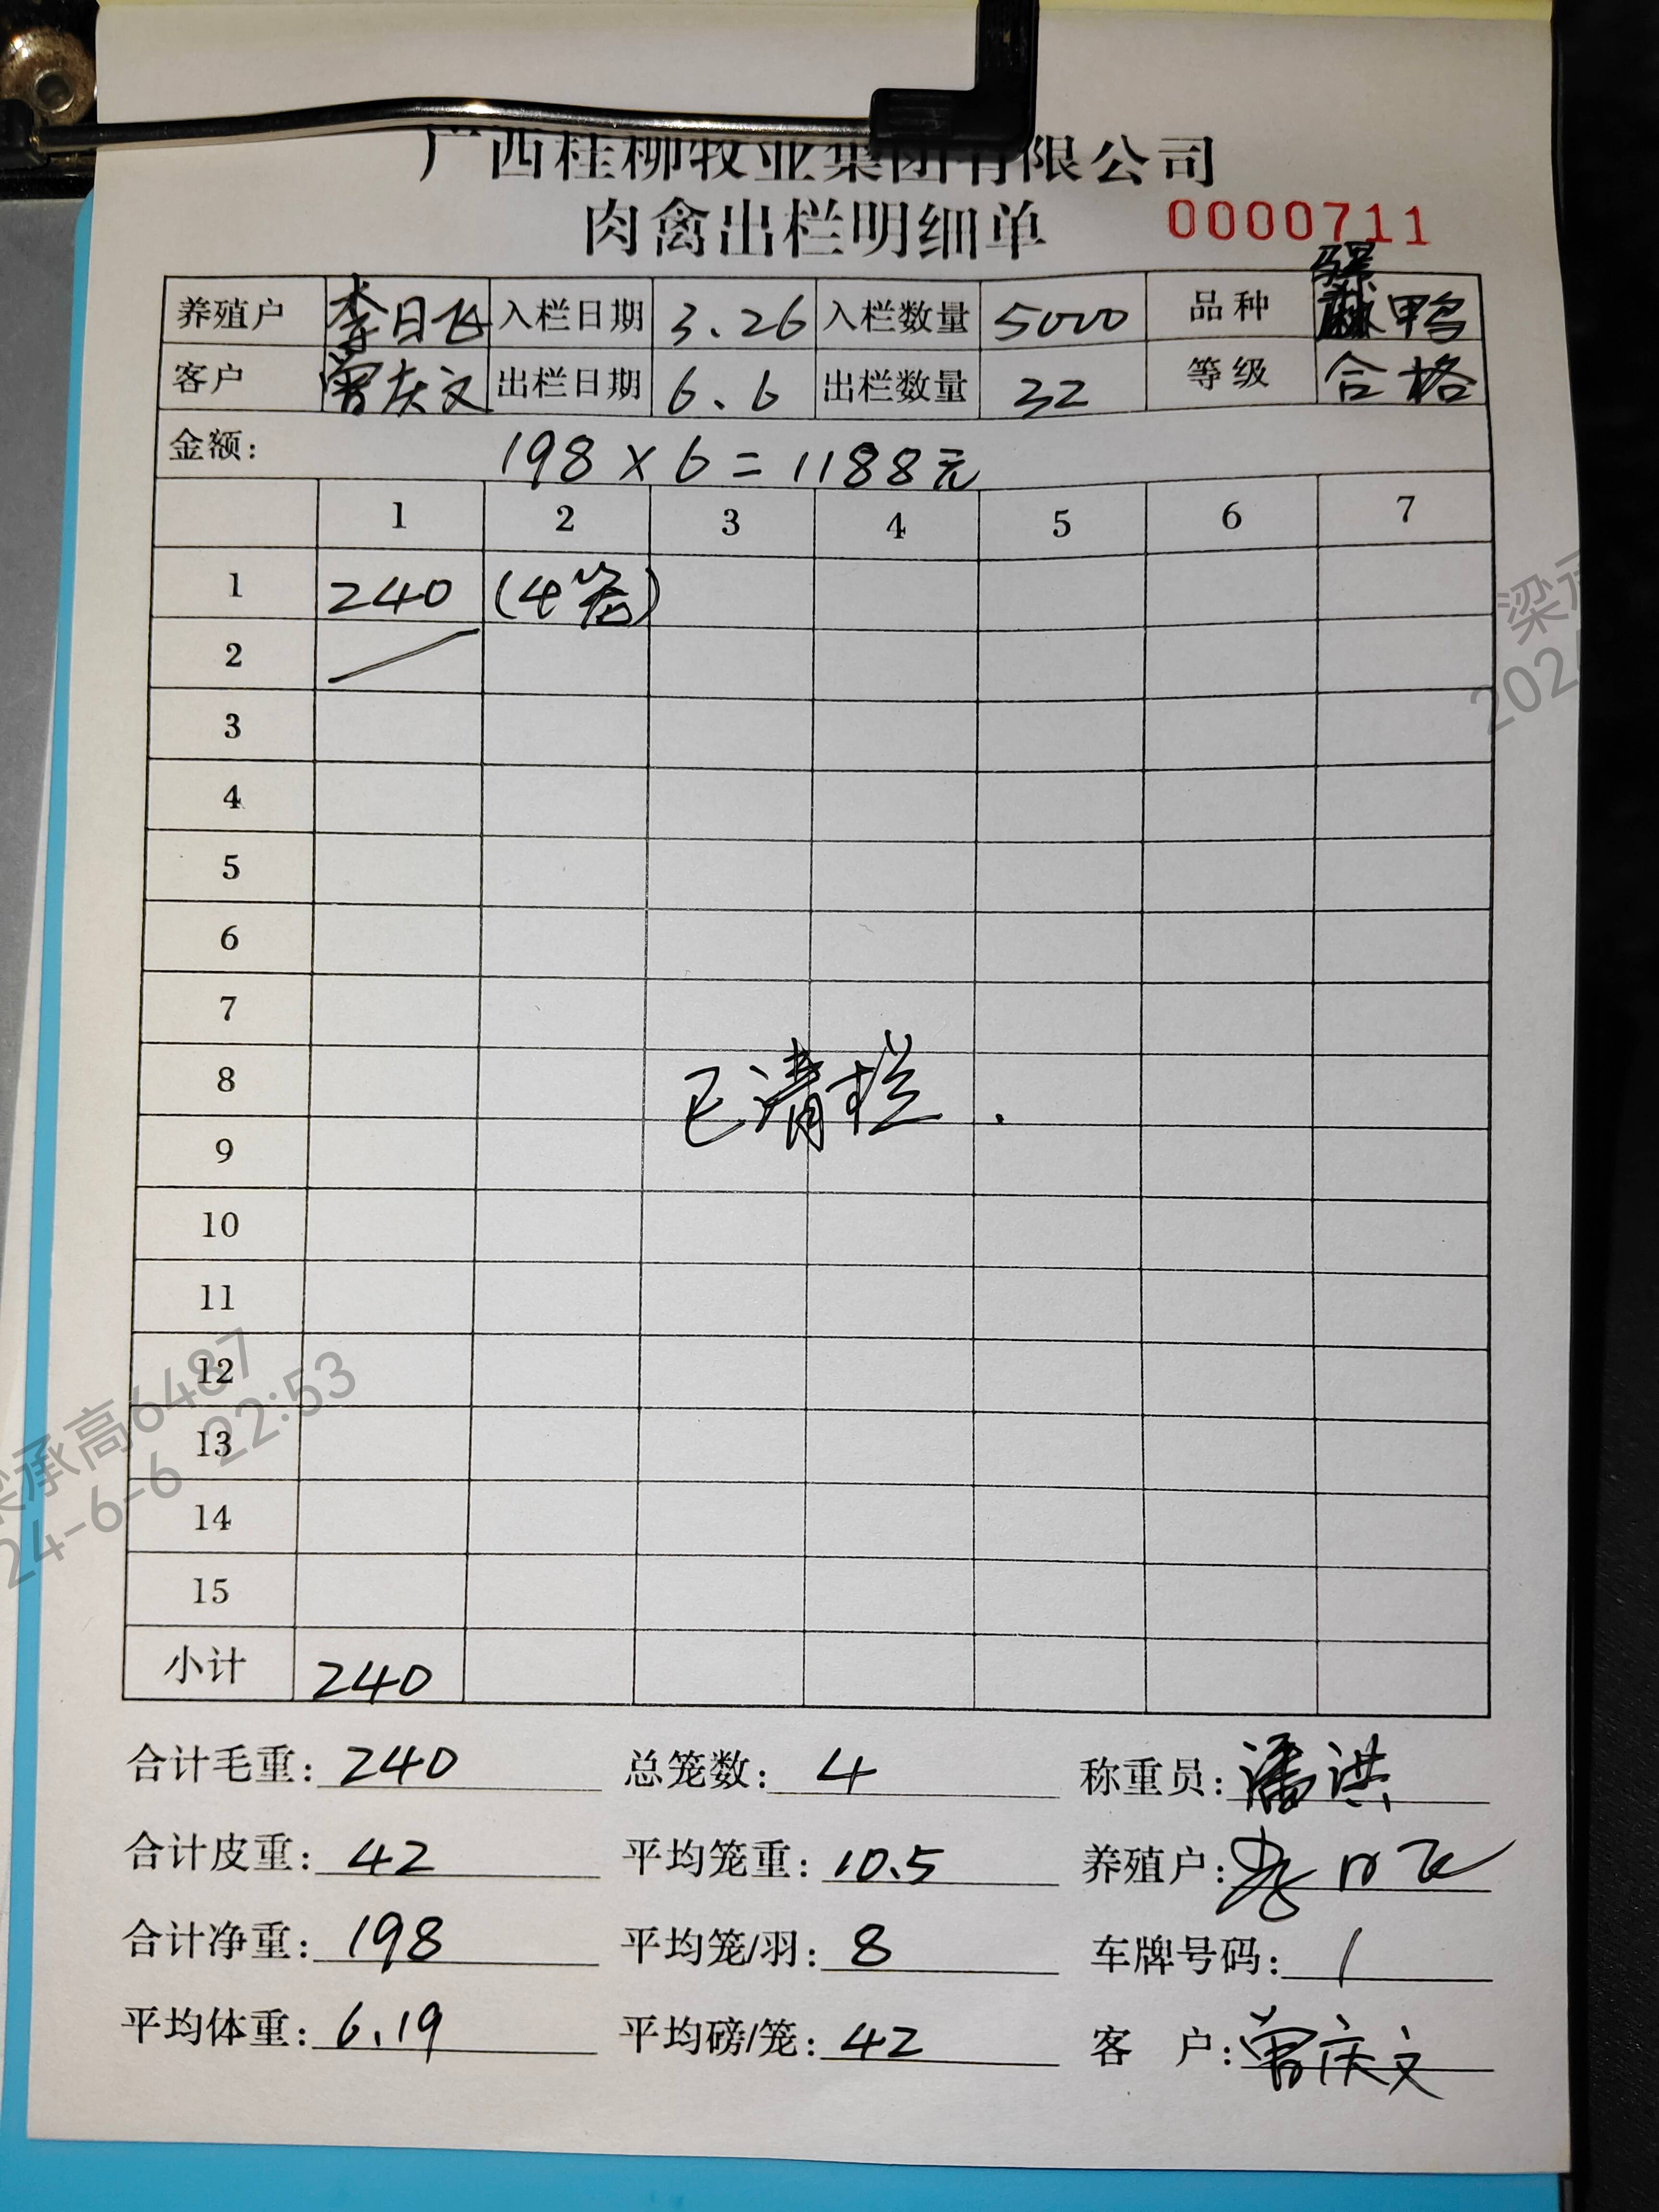 广西桂柳牧业集团有限公司
肉禽出栏明细单 0000711
养殖户 李日飞 入栏日期 3.26 入栏数量 5000 品种 鸭
客户 曾庆文 出栏日期 6.6 出栏数量 32 等级 合格
金额: 198×6=1188元
1 2 3 4 5 6 7
1 240 (4笼)
2
3
4
5
6
7
8 已清栏.
9
10
11
12
13
14
15
小计 240
合计毛重: 240 总笼数: 4 称重员: 潘洪
合计皮重: 42 平均笼重: 10.5 养殖户: 李日飞
合计净重: 198 平均笼/羽: 8 车牌号码: /
平均体重: 6.19 平均磅/笼: 42 客 户: 曾庆文
梁承高6487
24-6-6 22:53
梁承
202